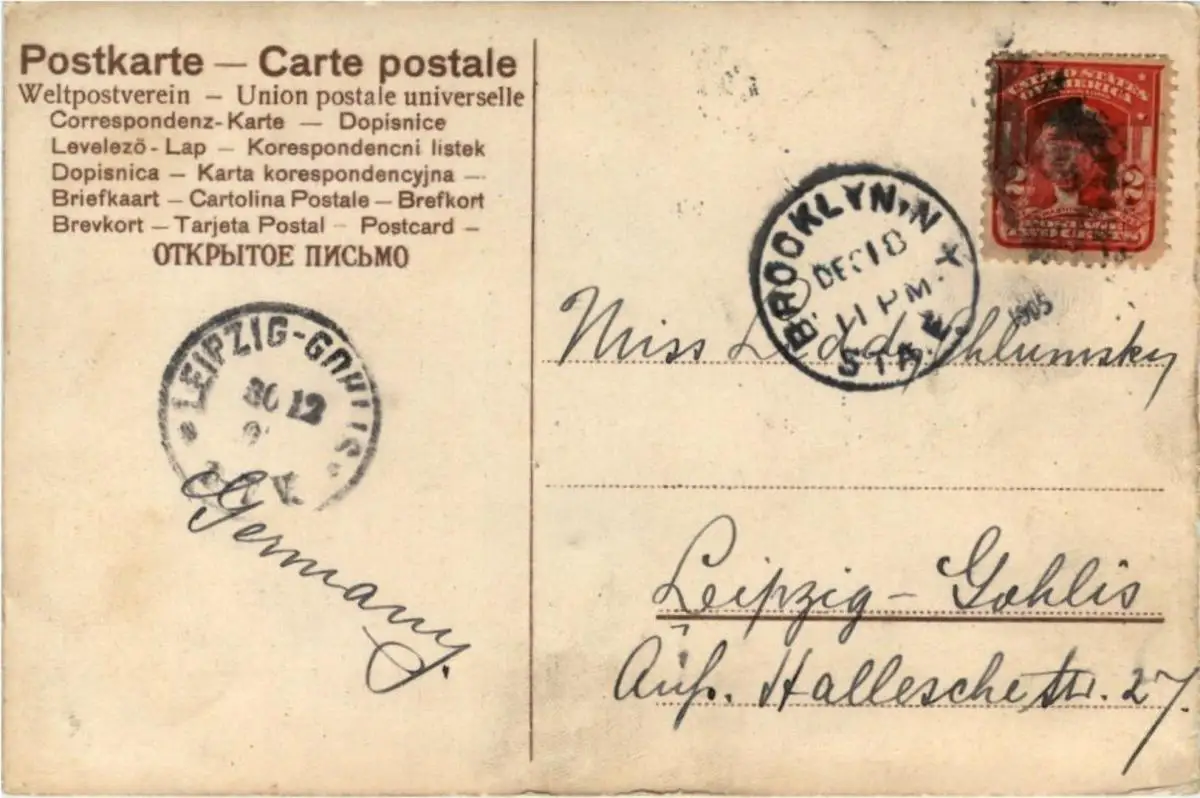 Postkarte — Carte postale
Weltpostverein — Union postale universelle
Correspondenz-Karte — Dopisnice
Levelező-Lap — Korespondencni listek
Dopisnica — Karta korespondencyjna —
Briefkaart — Cartolina Postale — Brefkort
Brevkort — Tarjeta Postal — Postcard —
ОТКРЫТОЕ ПИСЬМО
UNITED STATES
OF AMERICA
2 2
TWO CENTS
BROOKLYN, N Y
DEC 18
11 PM
STA.
1905
LEIPZIG-GOHLIS
30 12
Germany.
Miss Schlumsky
Leipzig-Gohlis
Äuß. Hallesche str. 27.